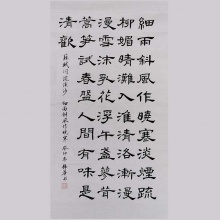 細雨斜風作曉寒淡煙疏
柳媚晴灘入淮清洛漸漫
漫雪沫乳花浮午盞蓼茸
蒿筍試春盤人間有味是
清歡
蘇軾詞浣溪沙 細雨斜風作曉寒